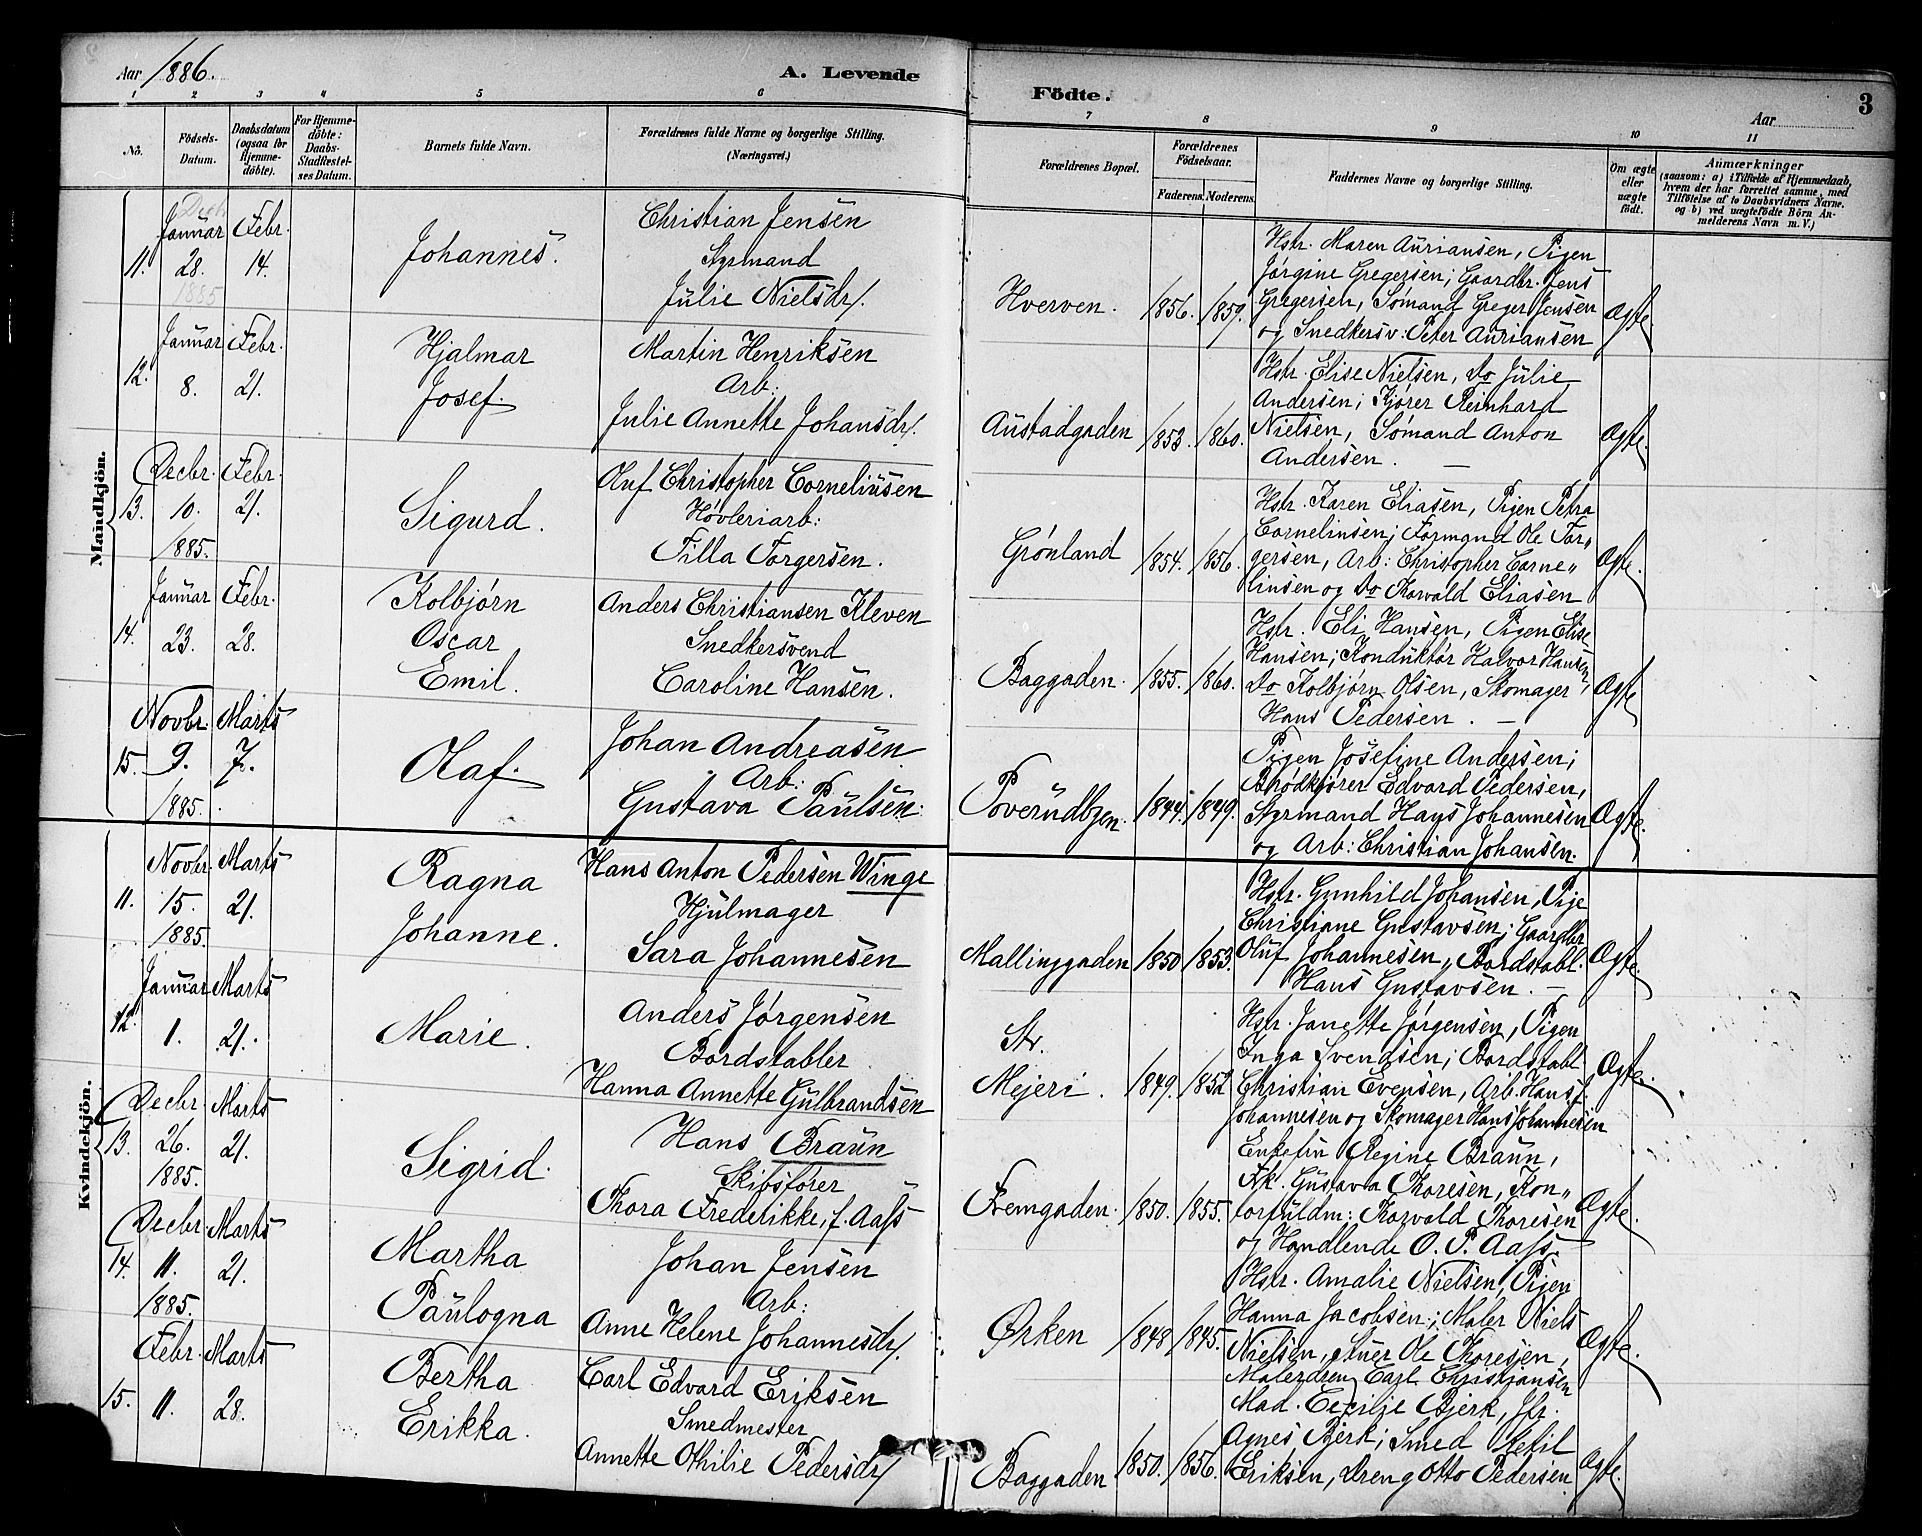 Aar 1886.
A. Levende
Födte.
Aar
3
1 2 3 4 5 6 7 8 9 10 11
No.
Födsels-Datum.
Daabsdatum (ogsaa for Hjemmedöbte).
For Hjemmedöbte: Daabs-Stadfæstelses Datum.
Barnets fulde Navn.
Forældrenes fulde Navne og borgerlige Stilling. (Næringsvei.)
Forældrenes Bopæl.
Forældrenes Födselsaar.
Faderens. Moderens.
Faddernes Navne og borgerlige Stilling.
Om ægte eller uægte födt.
Anmærkninger
(saasom: a) i Tilfælde af Hjemmedaab, hvem der har forrettet samme, med Tilföielse af to Daabsvidners Navne, og b) ved uægtefödte Börn Anmelderens Navn m. V.)
Mandkjön.
11.
Decbr
Januar 28.
1885
Febr. 14.
Johannes.
Christian Jensen
Styrmand
Julie Nielsdr.
Hverven.
1856. 1859.
Hstr. Maren Auriansen, Pigen
Jørgine Gregersen; Gaardbr. Jens
Gregersen, Sømand Greger Jensen
og Snedkersv: Peter Auriansen
Ægte.
12.
Januar 8.
Febr. 21.
Hjalmar
Josef.
Martin Henriksen
Arb:
Julie Annette Johansdr.
Austadgaden
1853. 1860.
Hstr. Elise Nielsen, Do Julie
Andersen; Kjører Reinhard
Nielsen, Sømand Anton
Andersen. —
Ægte.
13.
Decbr. 10.
1885.
Febr. 21.
Sigurd.
Oluf Christopher Corneliusen
Høvleriarb:
Tilla Torgersen.
Grønland
1854. 1856.
Hstr. Karen Eliasen, Pigen Petra
Corneliusen; Formand Ole Tor„
gersen, Arb: Christopher Corne„
liusen og Do Torvald Eliasen
Ægte.
14.
Januar 23.
Febr. 28.
Kolbjørn
Oscar
Emil.
Anders Christiansen Kleven
Snedkersvend
Caroline Hansen.
Baggaden.
1855. 1860.
Hstr. Eli Hansen, Pigen Elise
Hansen; Konduktør Halvor Hansen,
Do Kolbjørn Olsen, Skomager
Hans Pedersen. —
Ægte
15.
Novbr. 9.
1885.
Marts 7.
Olaf.
Johan Andreasen
Arb:
Gustava Paulsen.
Poverudbyen.
1844. 1849.
Pigen Josefine Andersen;
Brødkjører Edvard Pedersen,
Styrmand Hans Johannesen
og Arb: Christian Johansen.
Ægte.
Kvindekjön.
11.
Novbr. 15.
1885.
Marts 21.
Ragna
Johanne.
Hans Anton Pedersen Winge
Hjulmager
Sara Johannesen
Mallinggaden
1850 1853.
Hstr. Gunhild Johansen, Pige
Christiane Gustavsen; Gaardbr
Oluf Johannesen, Bordstabl.
Hans Gustavsen. —
Ægte.
12.
Januar 1.
Marts 21.
Marie.
Anders Jørgensen
Bordstabler
Hanna Annette Gulbrandsen
Str.
Mejeri.
1849. 1852
Hstr. Janette Jørgensen, Pigen
Inga Svendsen; Bordstabl
Christian Evensen, Arb. Hans J.
Johannesen og Skomager Hans Johannesen
Ægte.
13.
Decbr. 26.
1885.
Marts 21.
Sigrid.
Hans Braun
Skibsfører
Thora Frederikke, f. Aass
Fremgaden.
1850. 1855.
Enkefru Regine Braun,
Frk. Gustava Thoresen, Kon„
torfuldm: Thorvald Thoresen
og Handlende O. P. Aass.
Ægte.
14.
Decbr. 11.
1885.
Marts 21.
Martha
Paulogna
Johan Jensen
Arb:
Anne Helene Johannesdr.
Ørken
1848 1845.
Hstr. Amalie Nielsen, Pigen
Hanna Jacobsen; Maler Niels
Nielsen, Stuer Ole Thoresen,
Malerdreng Carl Christiansen
Ægte.
15.
Febr. 11.
Marts 28.
Bertha
Erikka.
Carl Edvard Eriksen
Smedmester
Annette Othilie Pedersdr.
Baggaden
1850. 1856.
Mad. Cecilie Bjerk, Jfr.
Agnes Bjerk; Smed Ketil
Eriksen, Dreng Otto Pedersen
Ægte.